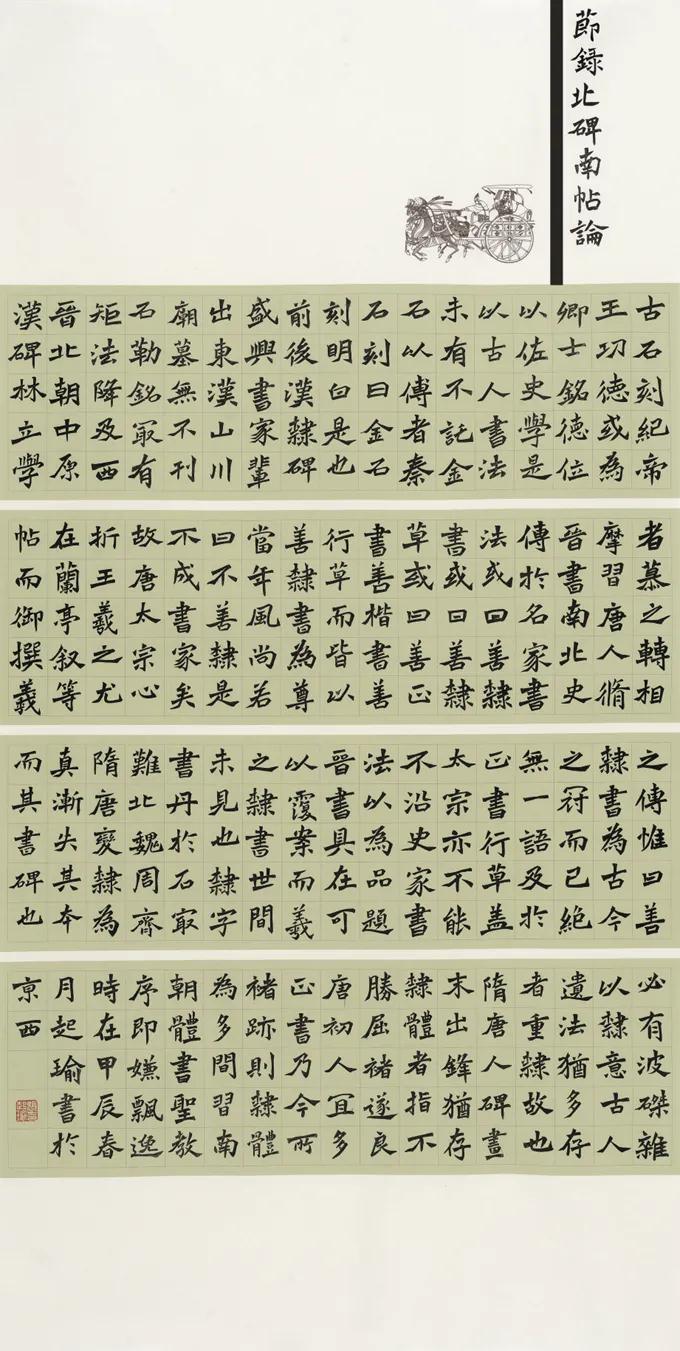 節錄北碑南帖論
古石刻紀帝
王功德或為
卿士銘德位
以佐史學是
以古人書法
未有不託金
石以傳者秦
石刻曰金石
刻明白是也
前後漢隸碑
盛興書家輩
出東漢山川
廟墓無不刊
石勒銘㝡有
矩法降及西
晉北朝中原
漢碑林立學
者慕之轉相
摩習唐人脩
晉書南北史
傳於名家書
法或曰善隸
書或曰善隸
草或曰善正
書善楷書善
行草而皆以
善隸書為尊
當年風尚若
曰不善隸是
不成書家矣
故唐太宗心
折王羲之尤
在蘭亭叙等
帖而御撰羲
之傳惟曰善
隸書為古今
之冠而已絕
無一語及於
正書行草盖
太宗亦不能
不沿史家書
法以為品題
晉書具在可
以覆案而羲
之隸書世間
未見也隸字
書丹於石㝡
難北魏周齊
隋唐變隸為
真漸失其本
而其書碑也
必有波磔雜
以隸意古人
遺法猶多存
者重隸故也
隋唐人碑畫
末出鋒猶存
隸體者指不
勝屈褚遂良
唐初人宜多
正書乃今所
褚跡則隸體
為多間習南
朝體書聖教
序即嫌飄逸
時在甲辰春
月起瑜書於
京西